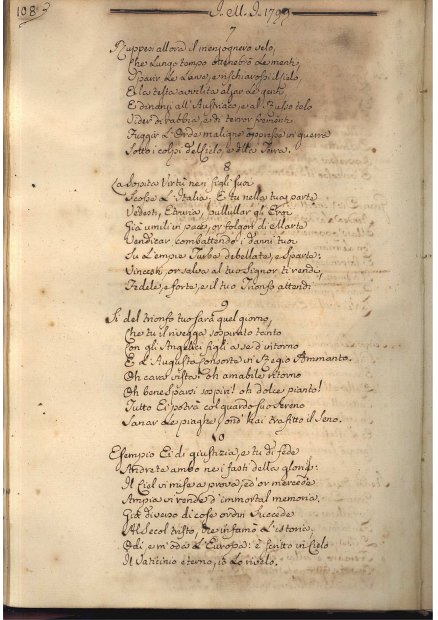 108
J. M. J. 1799
7
Ruppesi allora il menzognero velo,
Che lungo tempo ottenebrò le menti,
Sparir le Larve, e rischiarossi il Cielo,
E la testa avvilita alzar le genti
E dinanzi all'Austriaco, e al Russo telo
Vider di rabbia, e di terror frementi
Fuggir l'Orde maligne oppresse in guerra
Sotto i colpi del Cielo, e della Terra.
8
La sopita Virtù ne i figli suoi
Scosse l'Italia. E tu nella tua parte
Vedesti, Etruria, pullullar gli Eroi
Già umili in pace, or folgori di Marte
Vendicar combattendo i danni tuoi
Su l'empie Turbe debellate, e sparte:
Vincesti, or salva al tuo Signor ti rendi,
Fedele, e forte, e il tuo Trionfo attendi
9
Sì del trionfo tuo sarà quel giorno,
Che tu il rivegga sospirato tanto
Con gli Angelici figli a se d'intorno
E l'Augusta Consorte in Regio Ammanto.
Oh cara vista! oh amabile ritorno
Oh bene sparsi sospiri! oh dolce pianto!
Tutto Ei potrà col guardo suo sereno
Sanar le piaghe, ond'hai trafitto il seno.
10
Esempio Ei di giustizia, e tu di fede
Andrete ambo ne i fasti della gloria:
Il Ciel vi mise a prova, ed or mercede
Ampia vi rende d'immortal memoria.
Già diverso di cose ordin succede
Al Secol tristo, che infamò l'istoria.
Odi, e m'oda l'Europa: è scritto in Cielo
Il Vaticinio eterno, io lo rivelo.